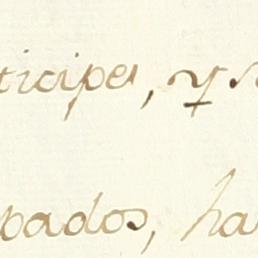 ticipes, y
bados, ha